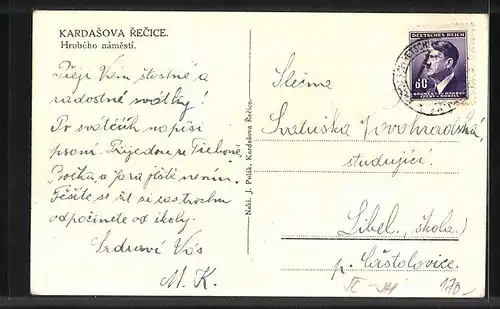 KARDAŠOVA ŘEČICE.
Hrubého náměstí.
Přeji Vám šťastné a
radostné svátky!
Po svátcích napíši
psaní. Přijedou z Třeboně
a jara ještě není.
Těšíte se že si zas trochu
odpočinete od školy.
Srdcaví Vás
M. K.
Nakl. J. Polák, Kardašova Řečice.
DEUTSCHES REICH
60
Slečna
Svatuška Novohradská,
studující.
Libel, (škola.)
p. Částolovice.
170-